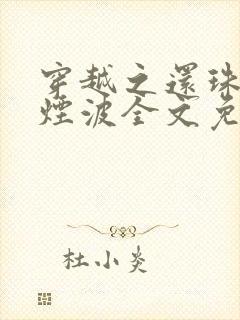 穿越之還珠
煙波全文免
杜小炎